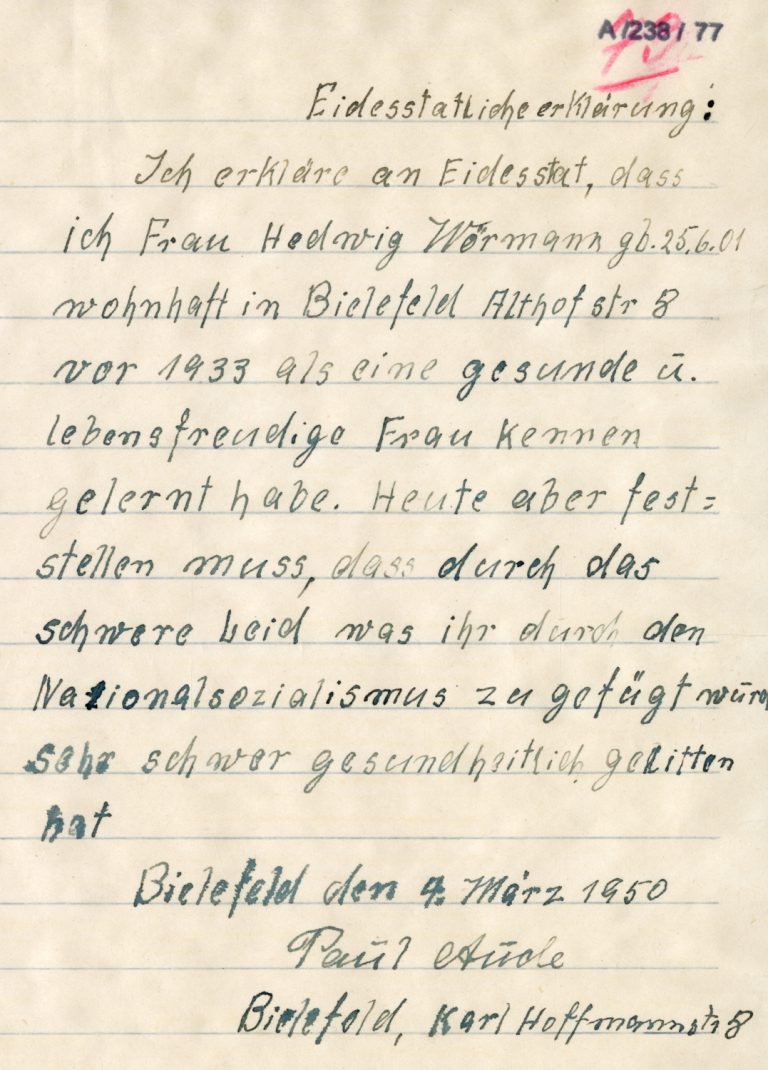 A/238/77
Eidesstatliche erklärung:
Ich erkläre an Eidesstat, dass
ich Frau Hedwig Wörmann gb. 25.6.01
wohnhaft in Bielefeld Althofstr 8
vor 1933 als eine gesunde ū.
lebensfreudige Frau kennen
gelernt habe. Heute aber fest=
stellen muss, dass durch das
schwere Leid was ihr durch den
Nationalsozialismus zu gefügt wūrd
sehr schwer gesundheitlich gelitten
hat
Bielefeld den 4. März 1950
Paūl Aūde
Bielefeld, Karl Hoffmannstr 8